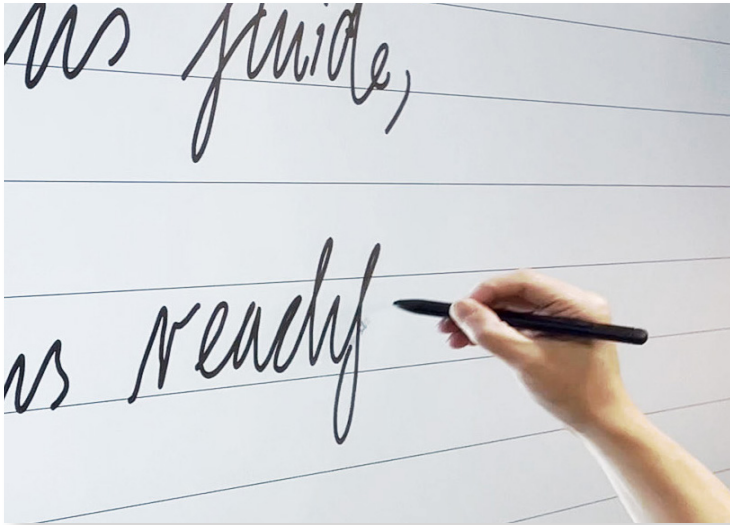 us fluide,
us ready